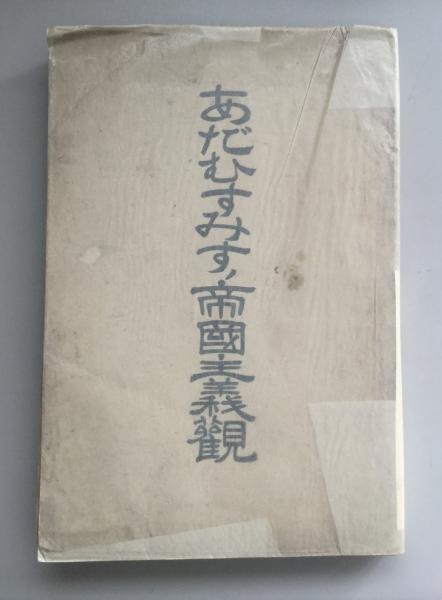 あだむすみすノ帝國主義觀